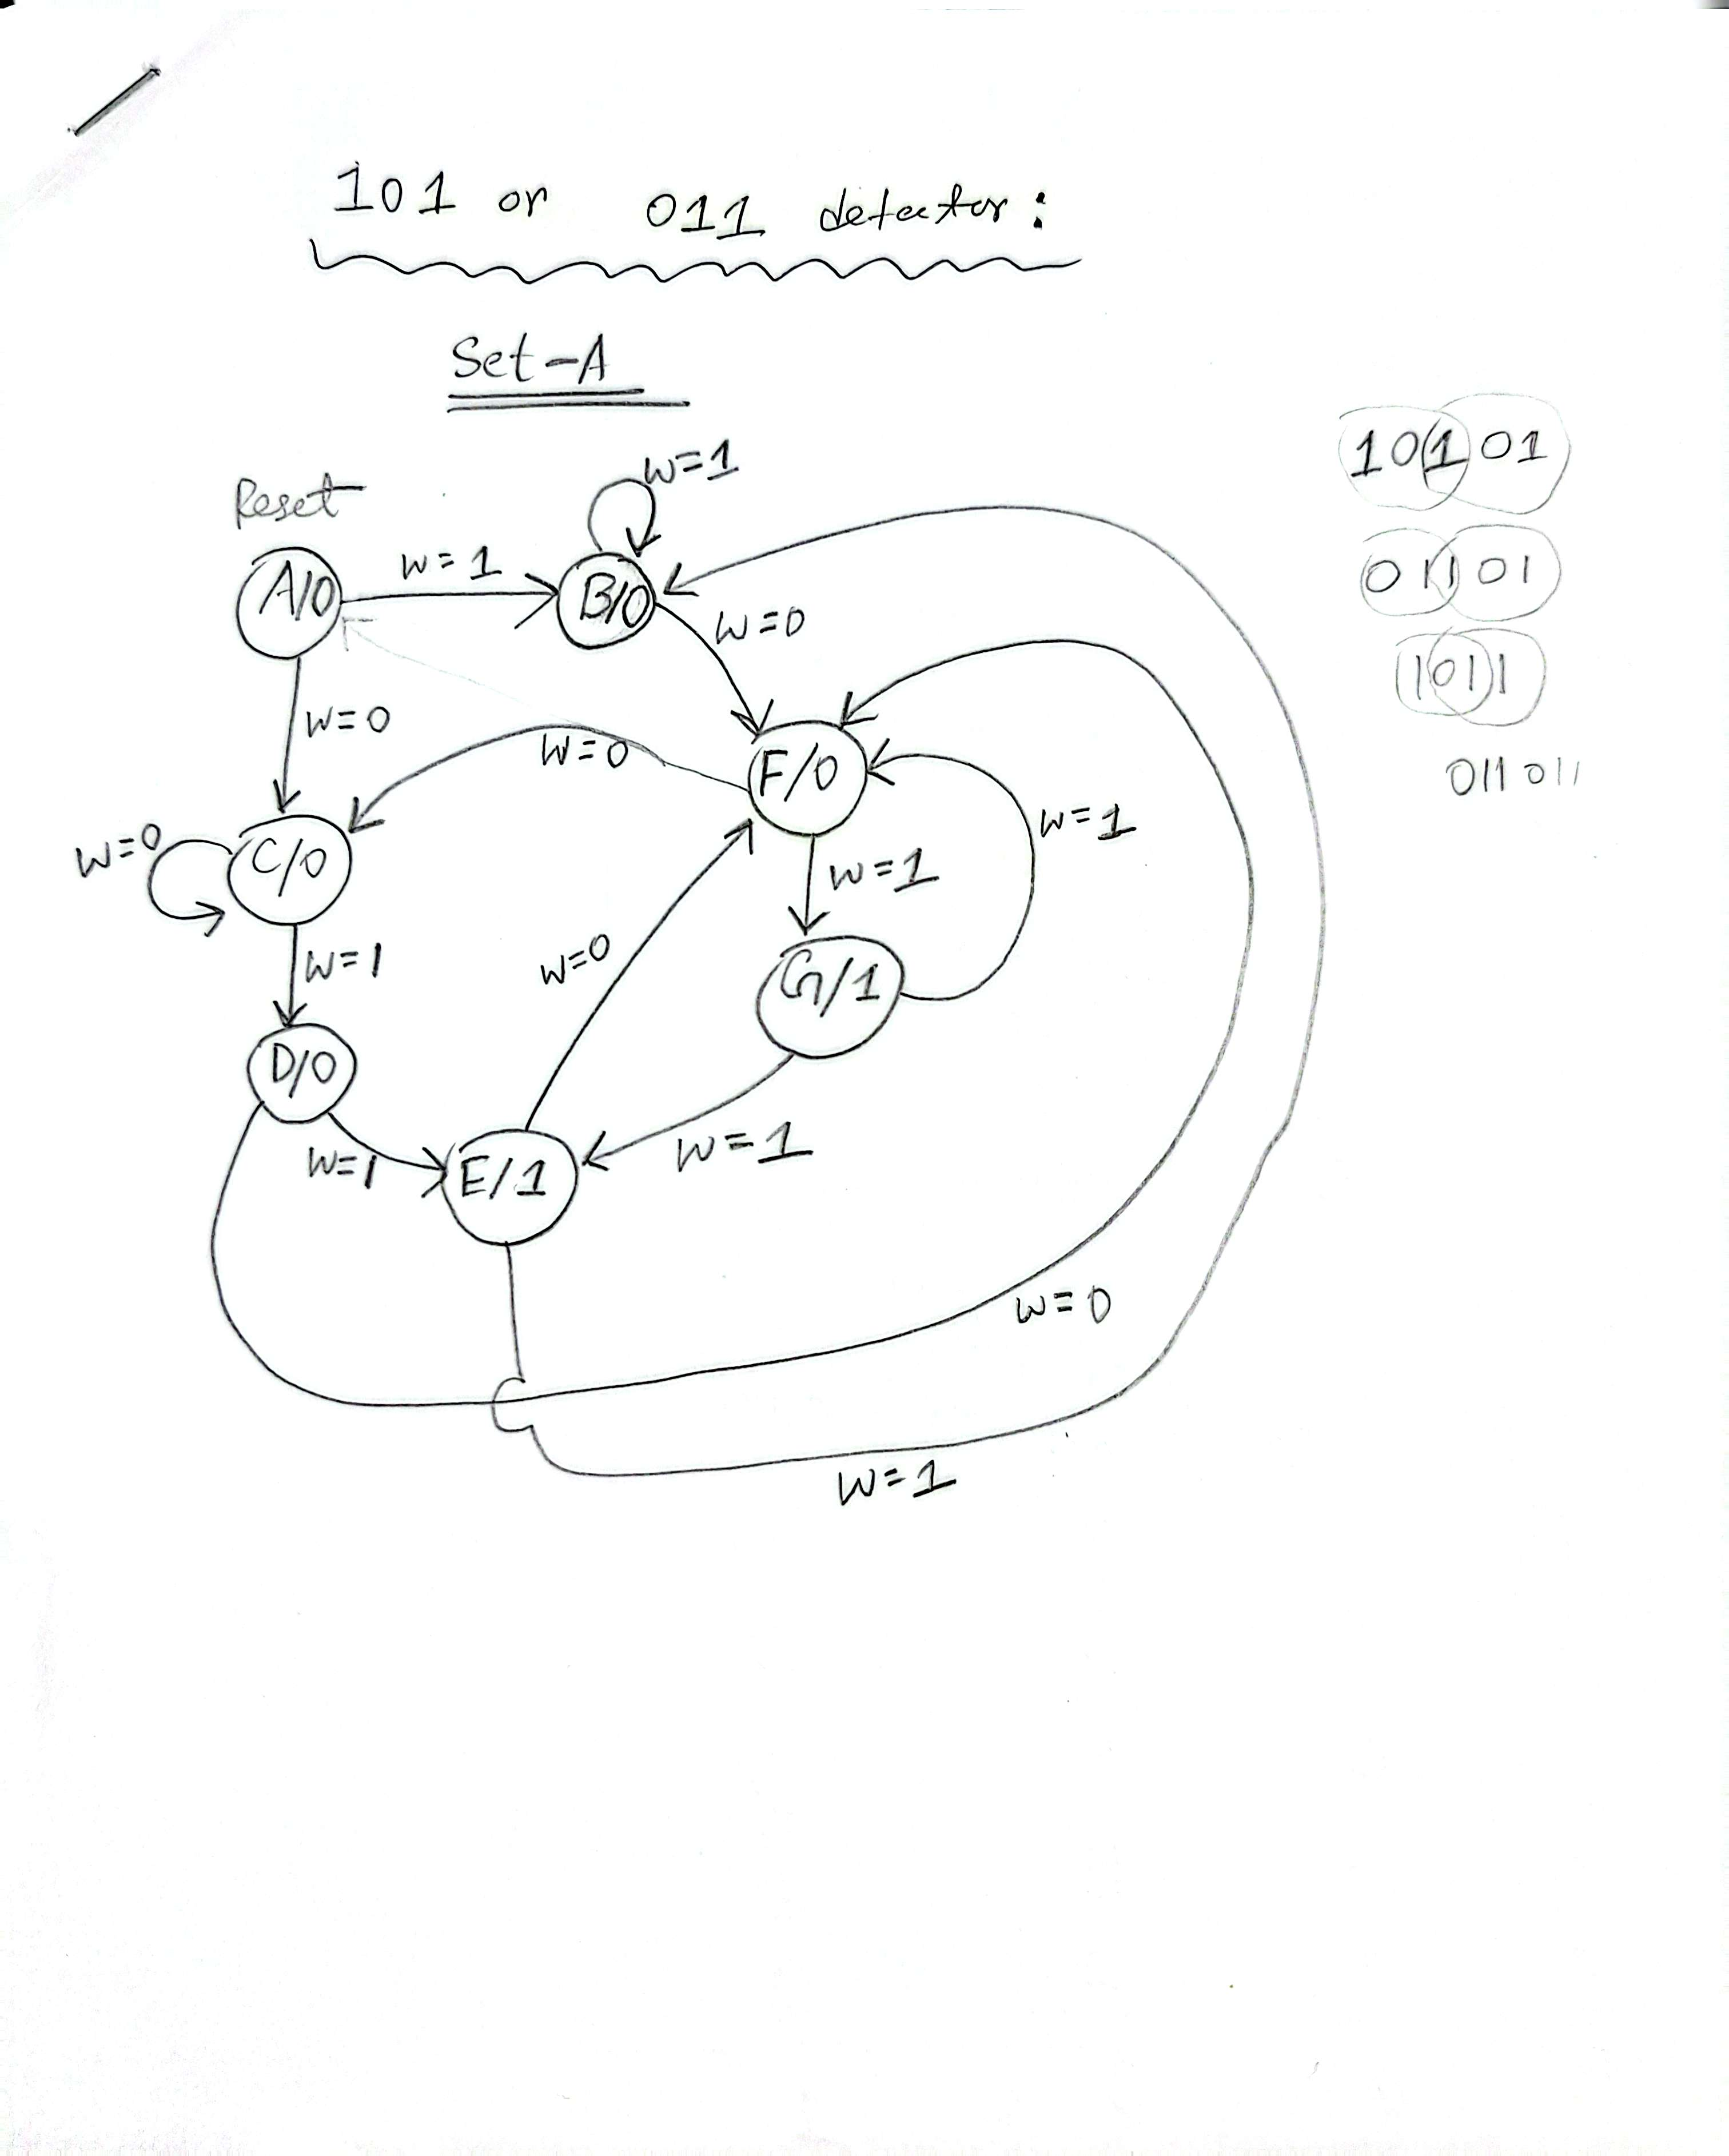 101 or 011 detector:
Set-A
Reset
w=1
w=1
A/0
B/0
w=0
w=0
w=0
F/0
w=0
C/0
w=1
w=1
w=1
w=0
G/1
D/0
w=1
w=1
E/1
w=0
w=1
10101
01101
1011
011011